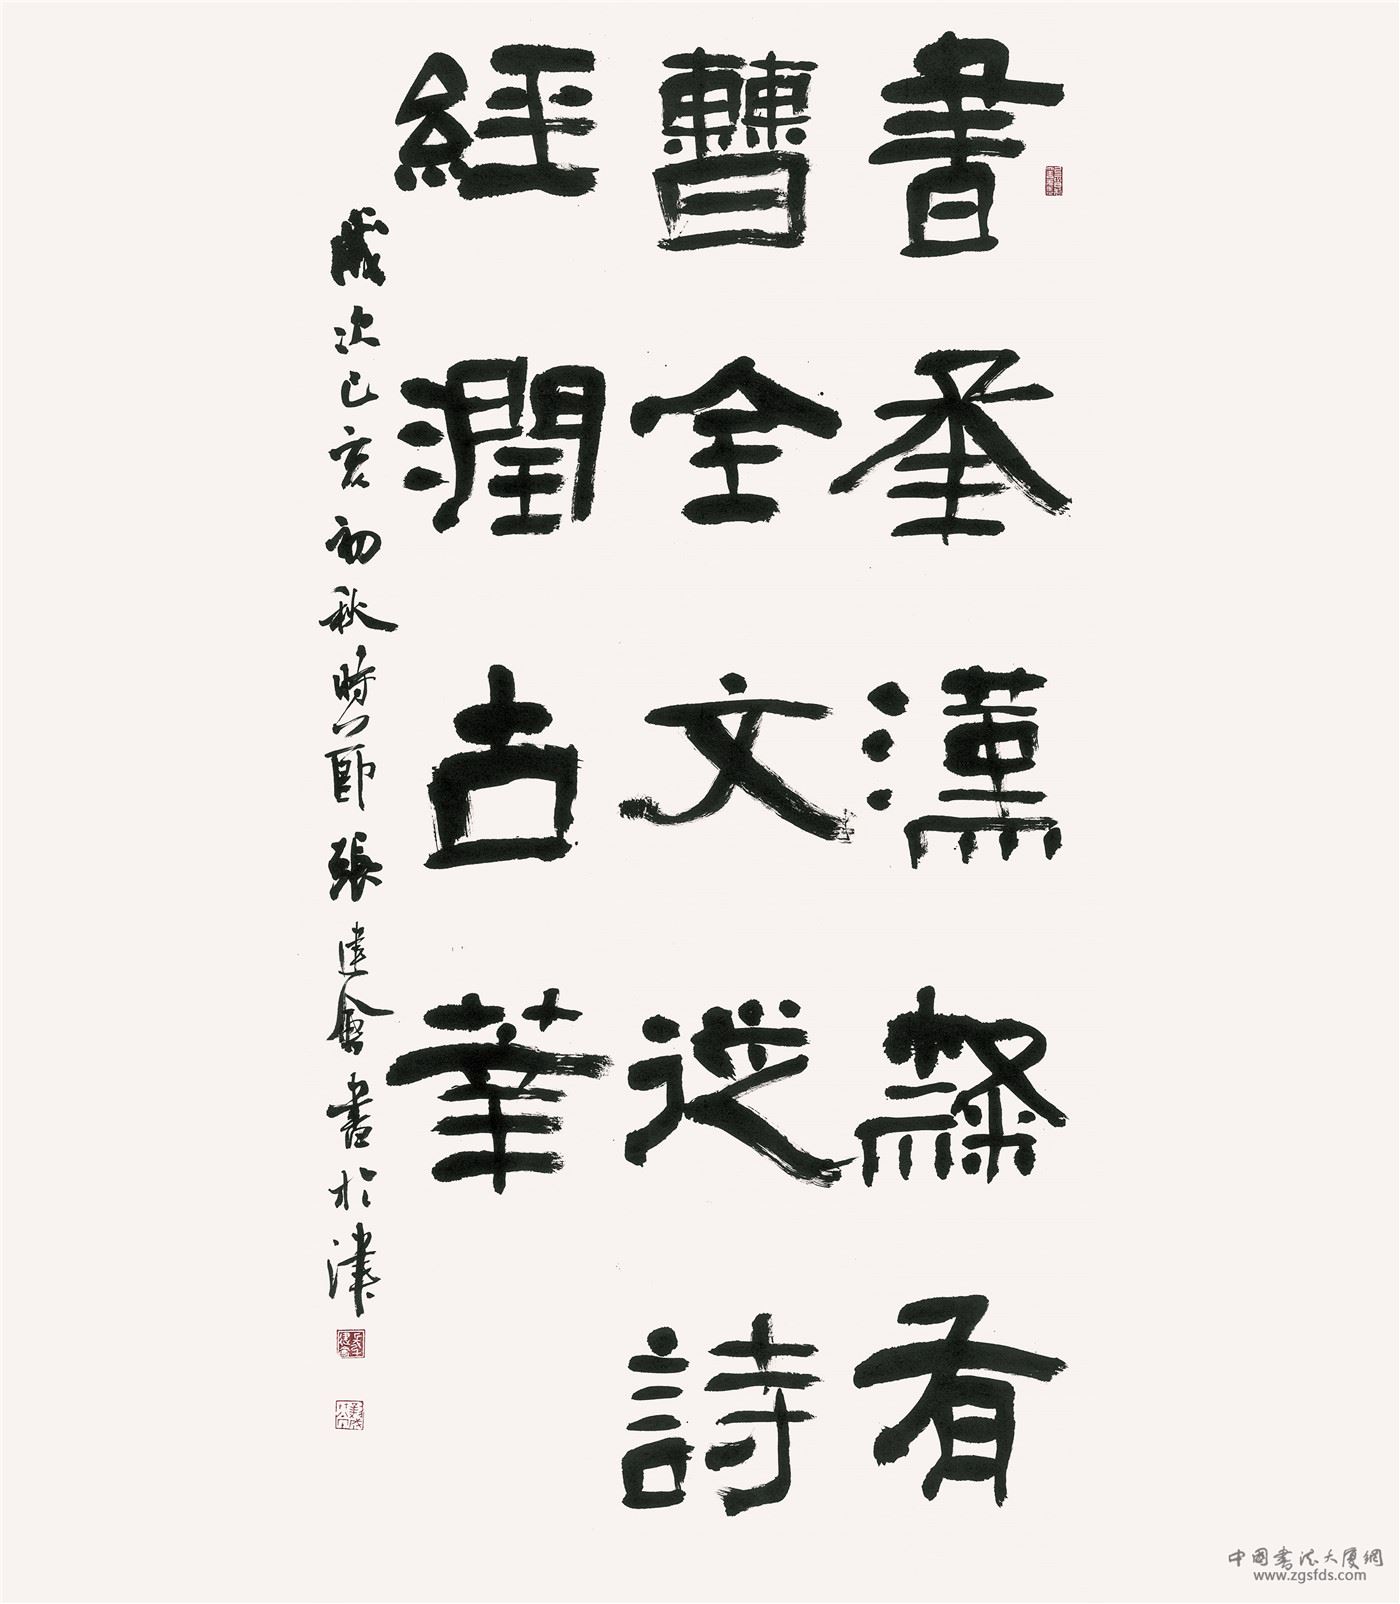 書承漢隸有
曹全文從詩
經潤古華
歲次己亥初秋時節張建會書於津
中國書法大廈網
www.zgsfds.com